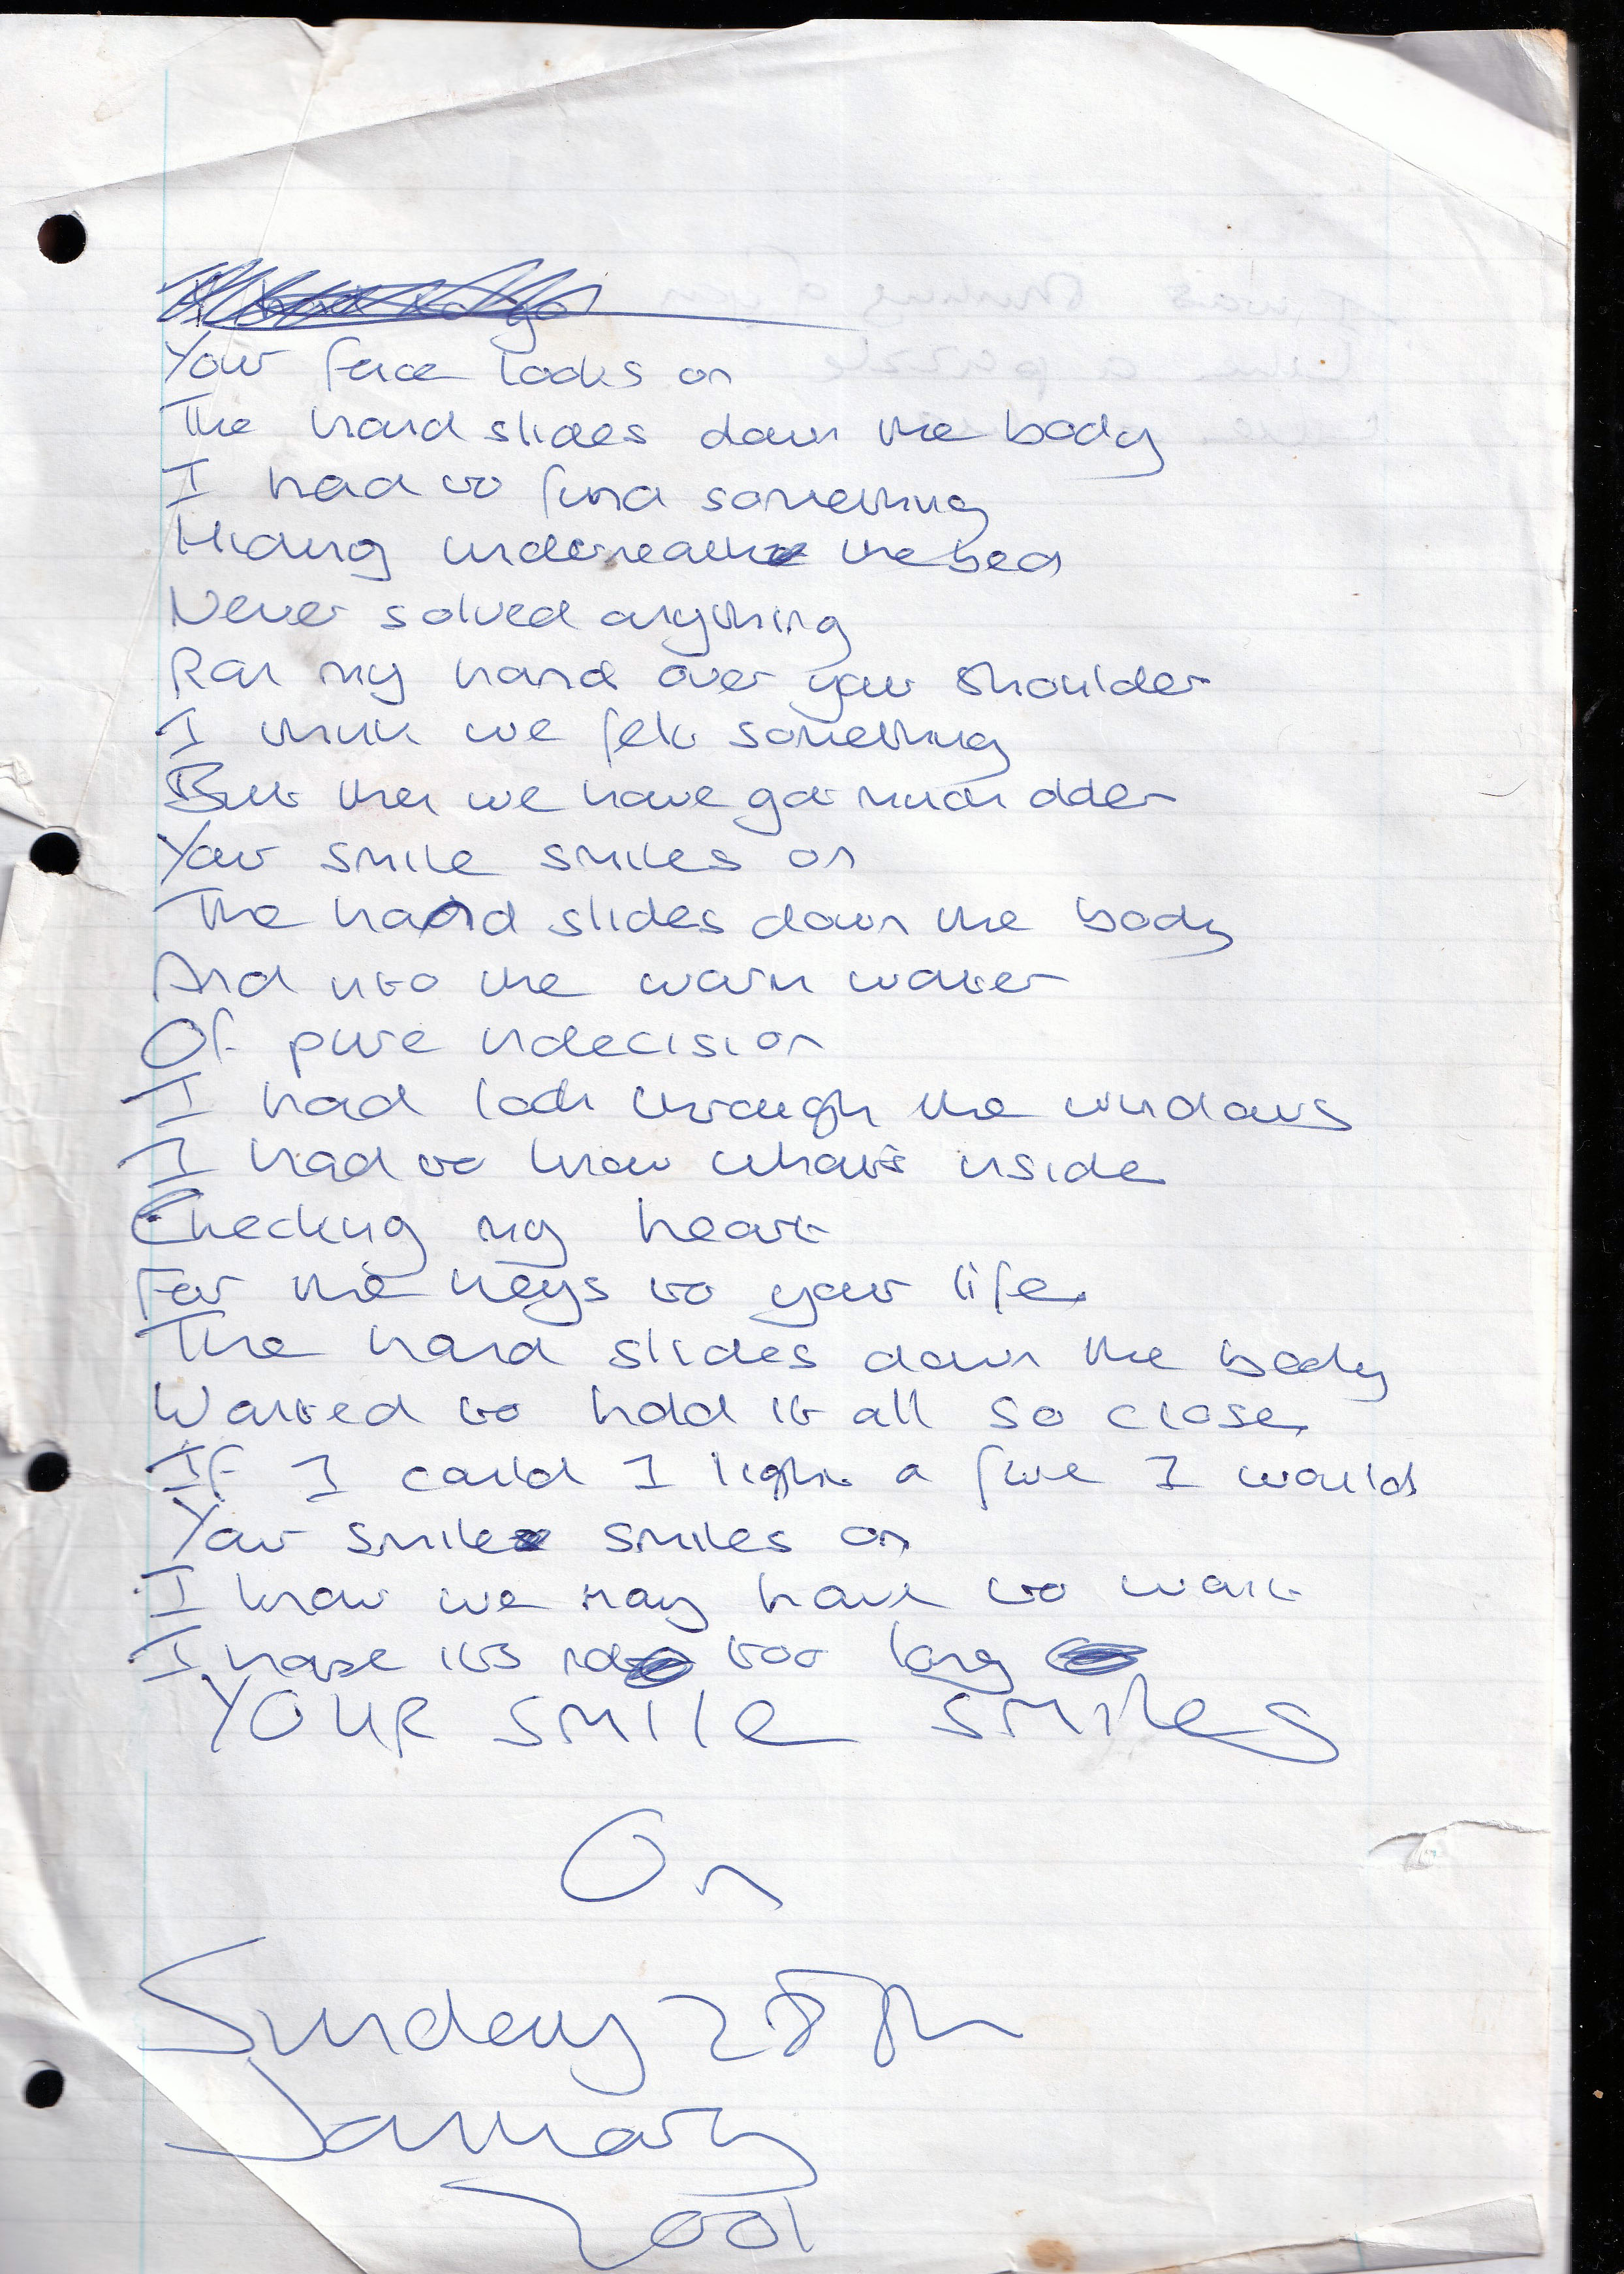 Your face looks on
The hand slides down the body
I had to find something
Hiding underneath the bed
Never solved anything
Ran my hand over your shoulder
I think we felt something
But then we have got much older
Your smile smiles on
The hand slides down the body
And into the warm water
Of pure indecision
I had look through the windows
I had to know what's inside
Checking my heart
For the keys to your life
The hand slides down the body
Wanted to hold it all so close
If I could I light a fire I would
Your smile smiles on
I know we may have to wait
I hope its not too long
YOUR SMILE SMILES
On
Sunday 28th
January
2001